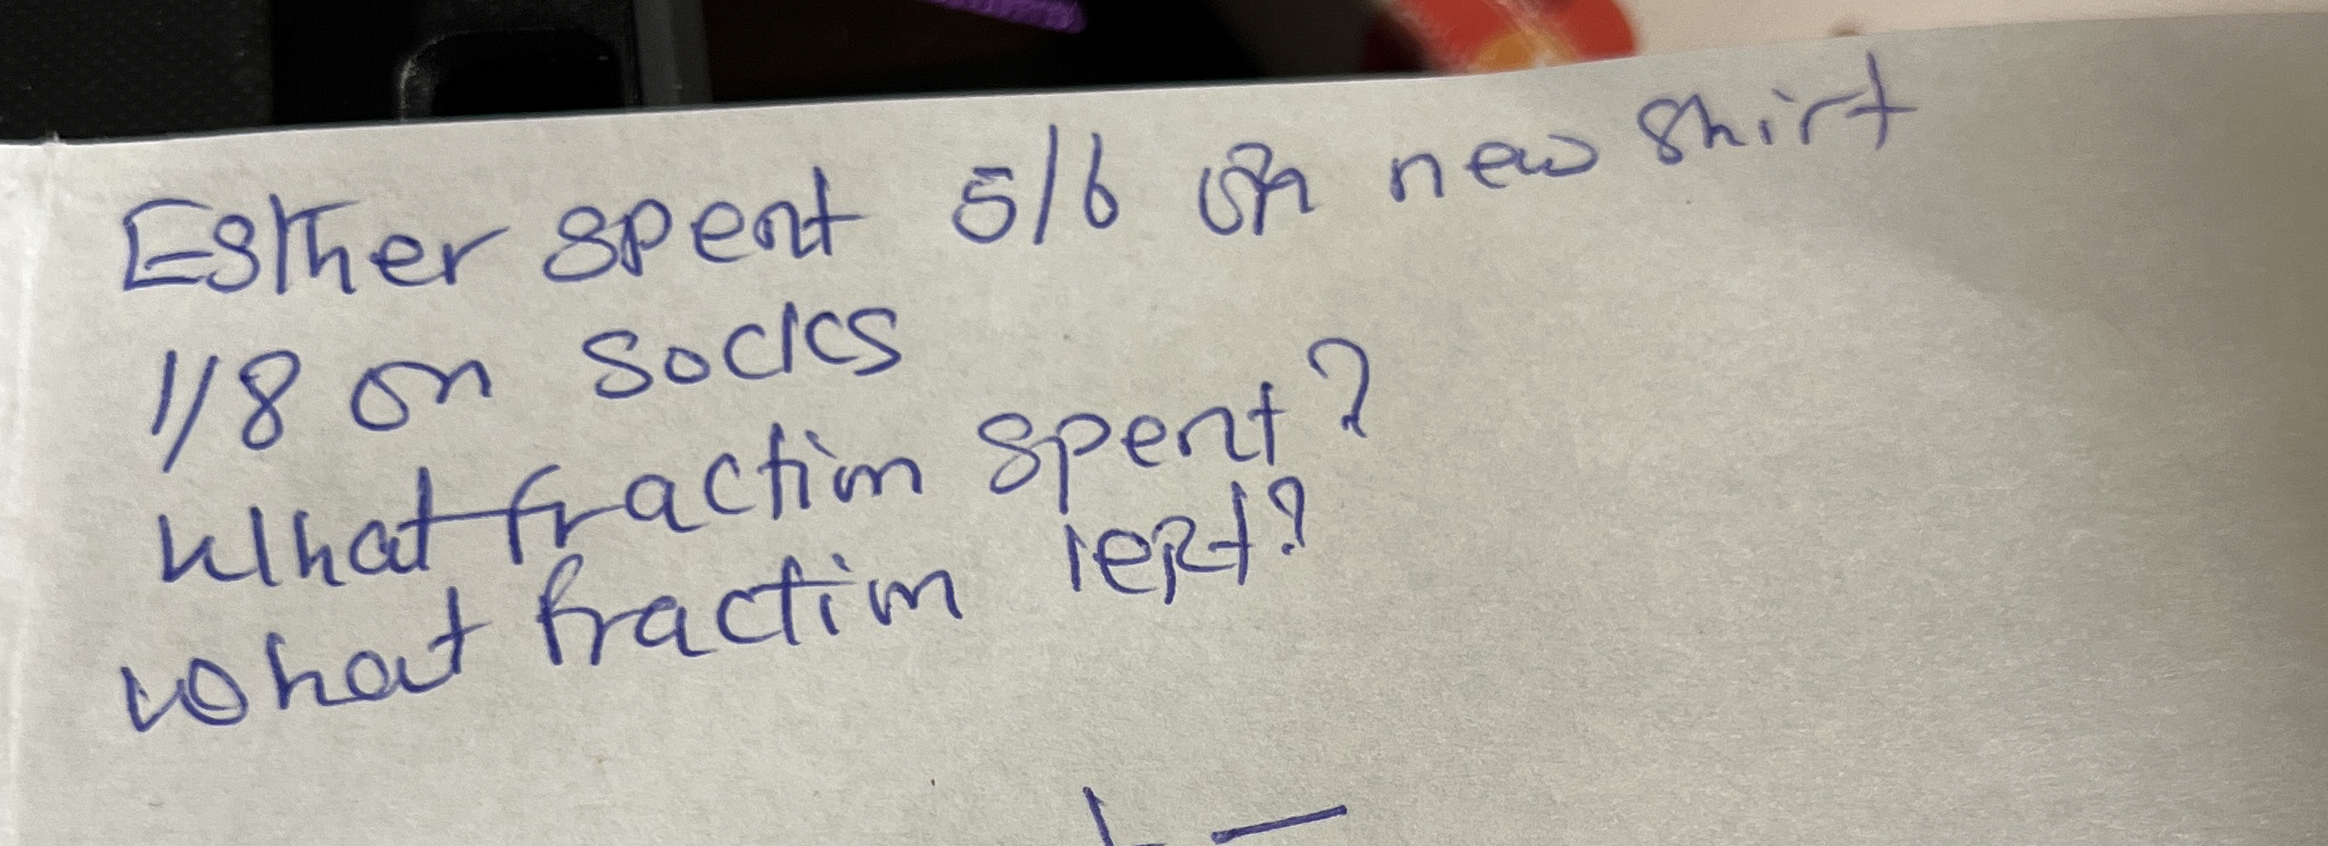 Esther spent 5/6 on new shirt
1/8 on socks
What fraction spent?
What fraction left?